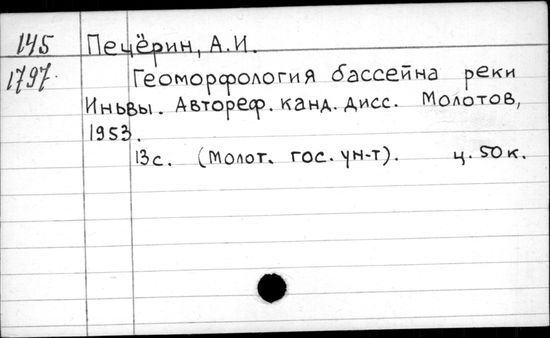 145 Печёрин, А.И.
1797. Геоморфология бассейна реки
Иньвы. Автореф. канд. дисс. Молотов,
1953.
13с. (Молот. гос. ун-т). ц. 50к.